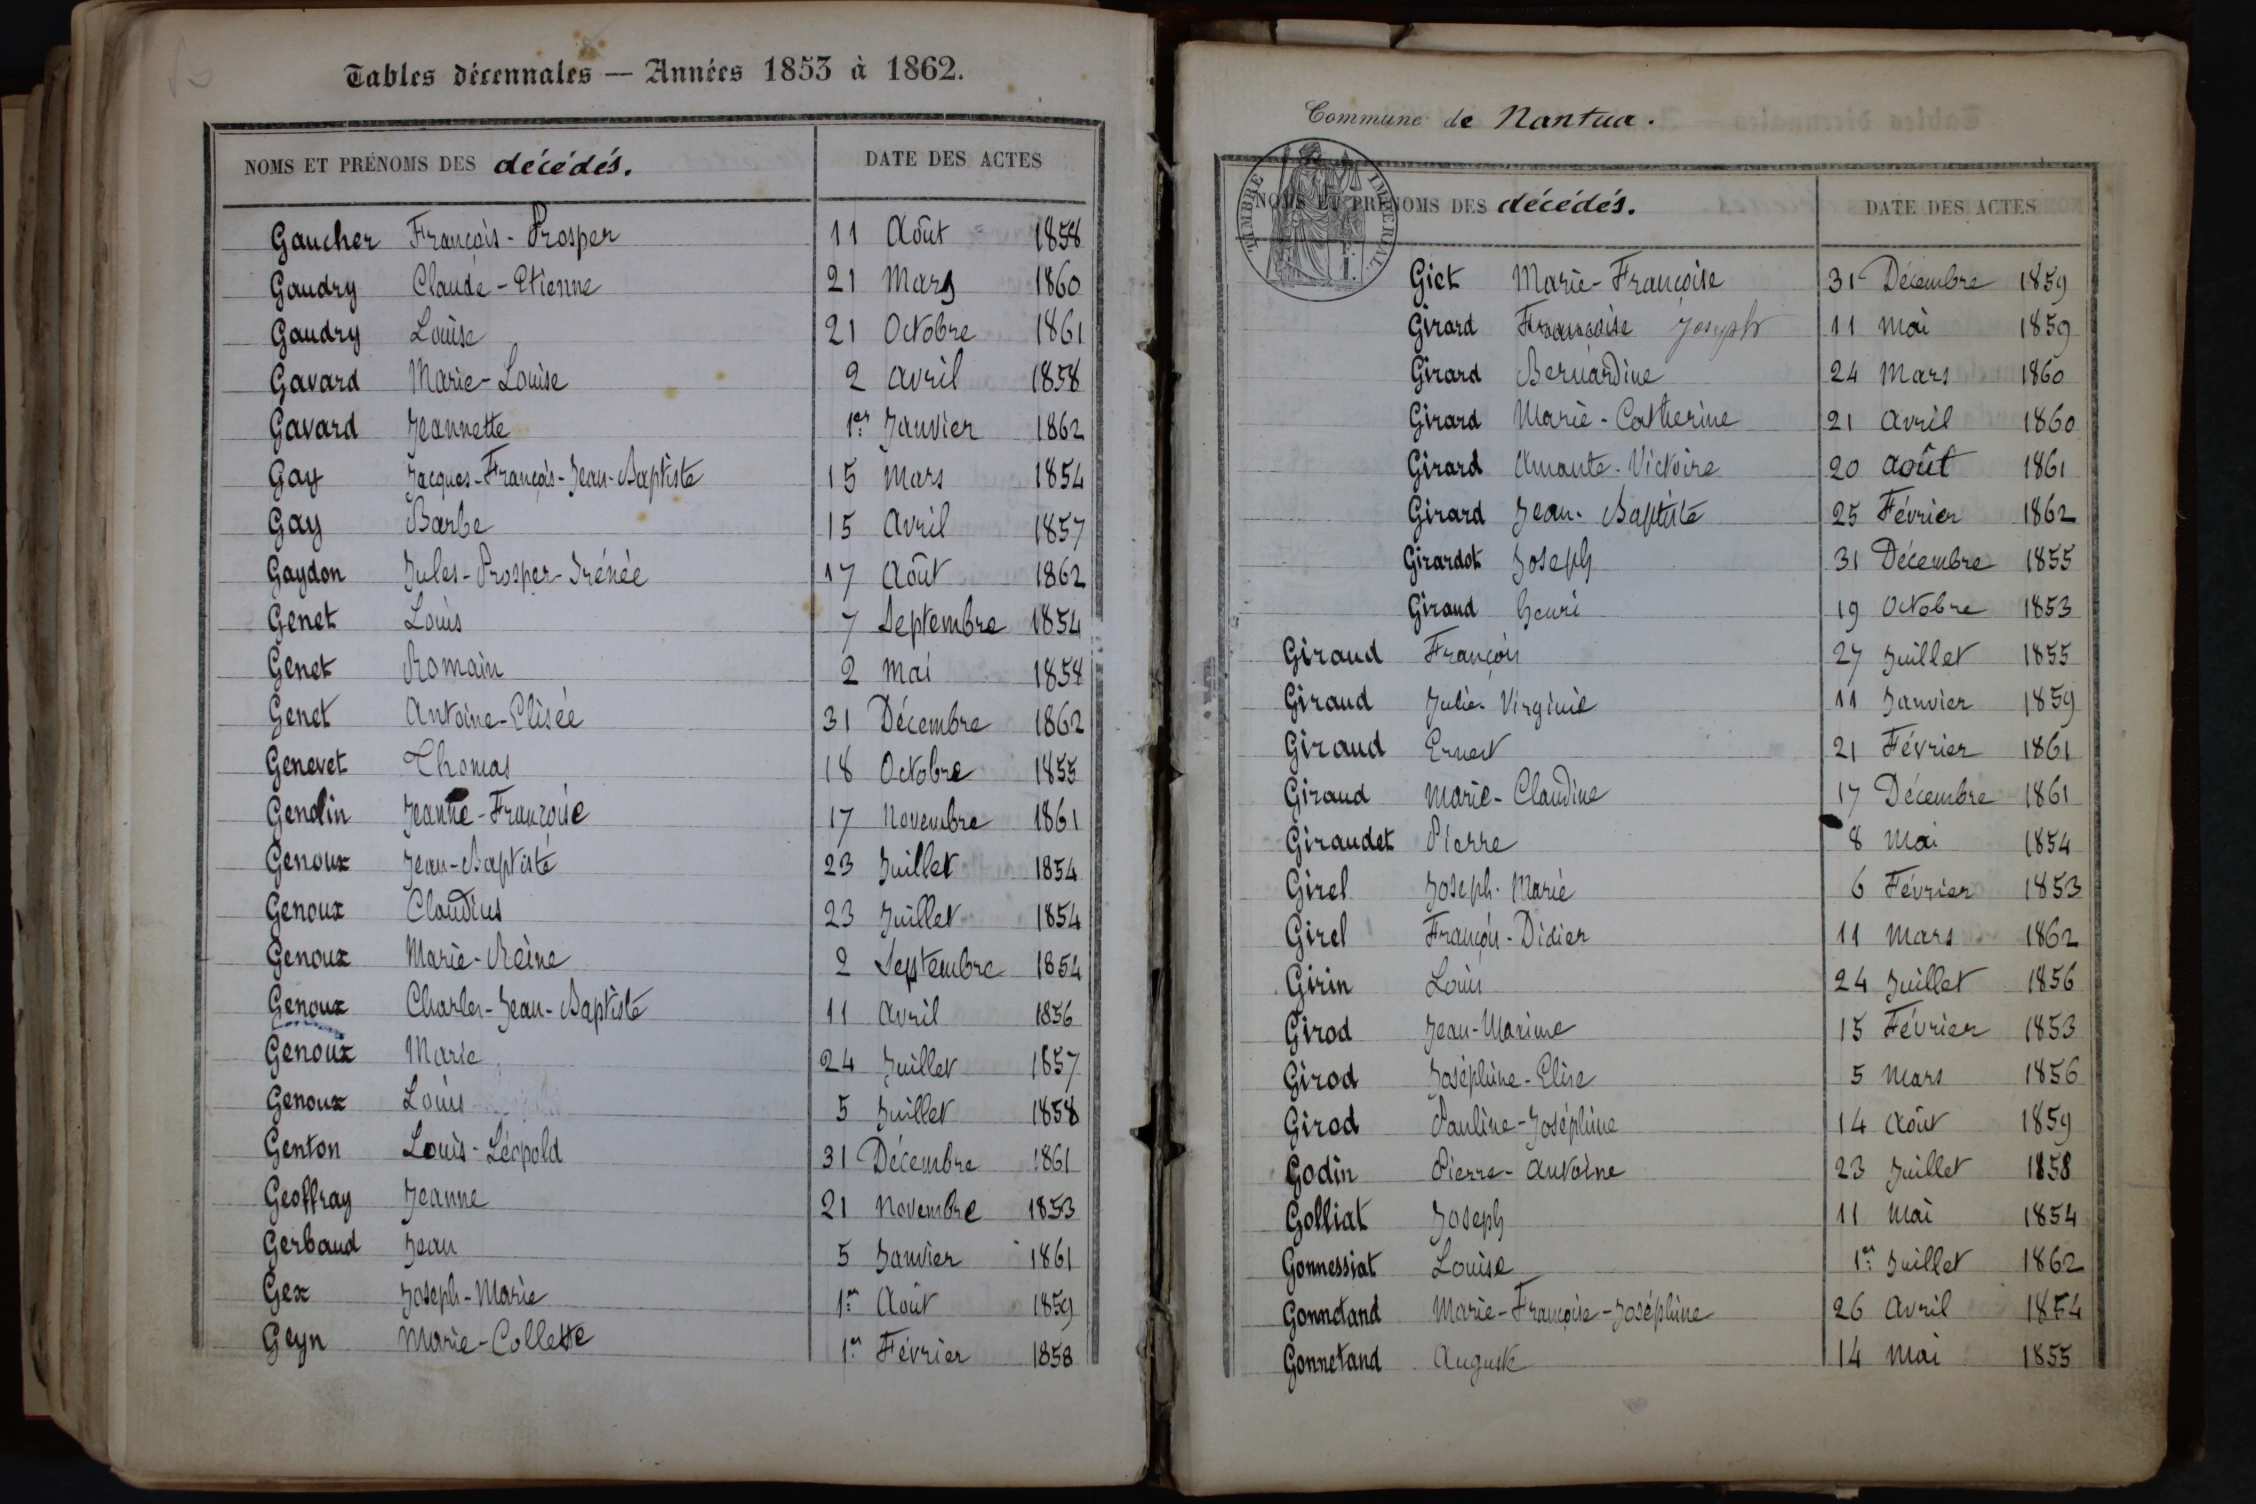 Tables décennales — Années 1853 à 1862.
NOMS ET PRÉNOMS DES décédés. DATE DES ACTES
Gaucher François-Prosper 11 Août 1858
Gaudry Claude-Etienne 21 Mars 1860
Gaudry Louise 21 Octobre 1861
Gavard Marie-Louise 2 avril 1858
Gavard Jeannette 1er Janvier 1862
Gay Jacques-François-Jean-Baptiste 15 Mars 1854
Gay Barbe 15 Avril 1857
Gaydon Jules-Prosper-Irénée 17 Août 1862
Genet Louis 7 Septembre 1854
Genet Romain 2 Mai 1858
Genet Antoine-Elisée 31 Décembre 1862
Genevet Thomas 18 Octobre 1855
Genolin Jeanne-Françoise 17 Novembre 1861
Genoux Jean-Baptiste 23 Juillet 1854
Genoux Claudius 23 Juillet 1854
Genoux Marie-Reine 2 Septembre 1854
Genoux Charles-Jean-Baptiste 11 Avril 1856
Genoux Marie 24 Juillet 1857
Genoux Louis 5 Juillet 1858
Genton Louis-Léopold 31 Décembre 1861
Geoffray Jeanne 21 Novembre 1853
Gerbaud Jean 5 Janvier 1861
Gex Joseph-Marie 1er Août 1859
Geyn Marie-Collette 1er Février 1858
Commune de Nantua.
TIMBRE IMPERIAL
NOMS ET PRÉNOMS DES décédés. DATE DES ACTES
Giet Marie-Françoise 31 Décembre 1859
Girard Françoise Joseph 11 Mai 1859
Girard Bernardine 24 Mars 1860
Girard Marie-Catherine 21 Avril 1860
Girard Amante-Victoire 20 Août 1861
Girard Jean-Baptiste 25 Février 1862
Girardot Joseph 31 Décembre 1855
Giraud henri 19 Octobre 1853
Giraud François 27 Juillet 1855
Giraud Julie-Virginie 11 Janvier 1859
Giraud Ernest 21 Février 1861
Giraud Marie-Claudine 17 Décembre 1861
Giraudet Pierre 8 Mai 1854
Girel Joseph-Marie 6 Février 1853
Girel François-Didier 11 Mars 1862
Girin Louis 24 Juillet 1856
Girod Jean-Marime 15 Février 1853
Girod Joséphine-Elise 5 Mars 1856
Girod Pauline-Joséphine 14 Août 1859
Godin Pierre-Antoine 23 Juillet 1858
Golliat Joseph 11 Mai 1854
Gonnessiat Louise 1er Juillet 1862
Gonnetand Marie-Françoise-Joséphine 26 Avril 1854
Gonnetand Auguste 14 Mai 1855